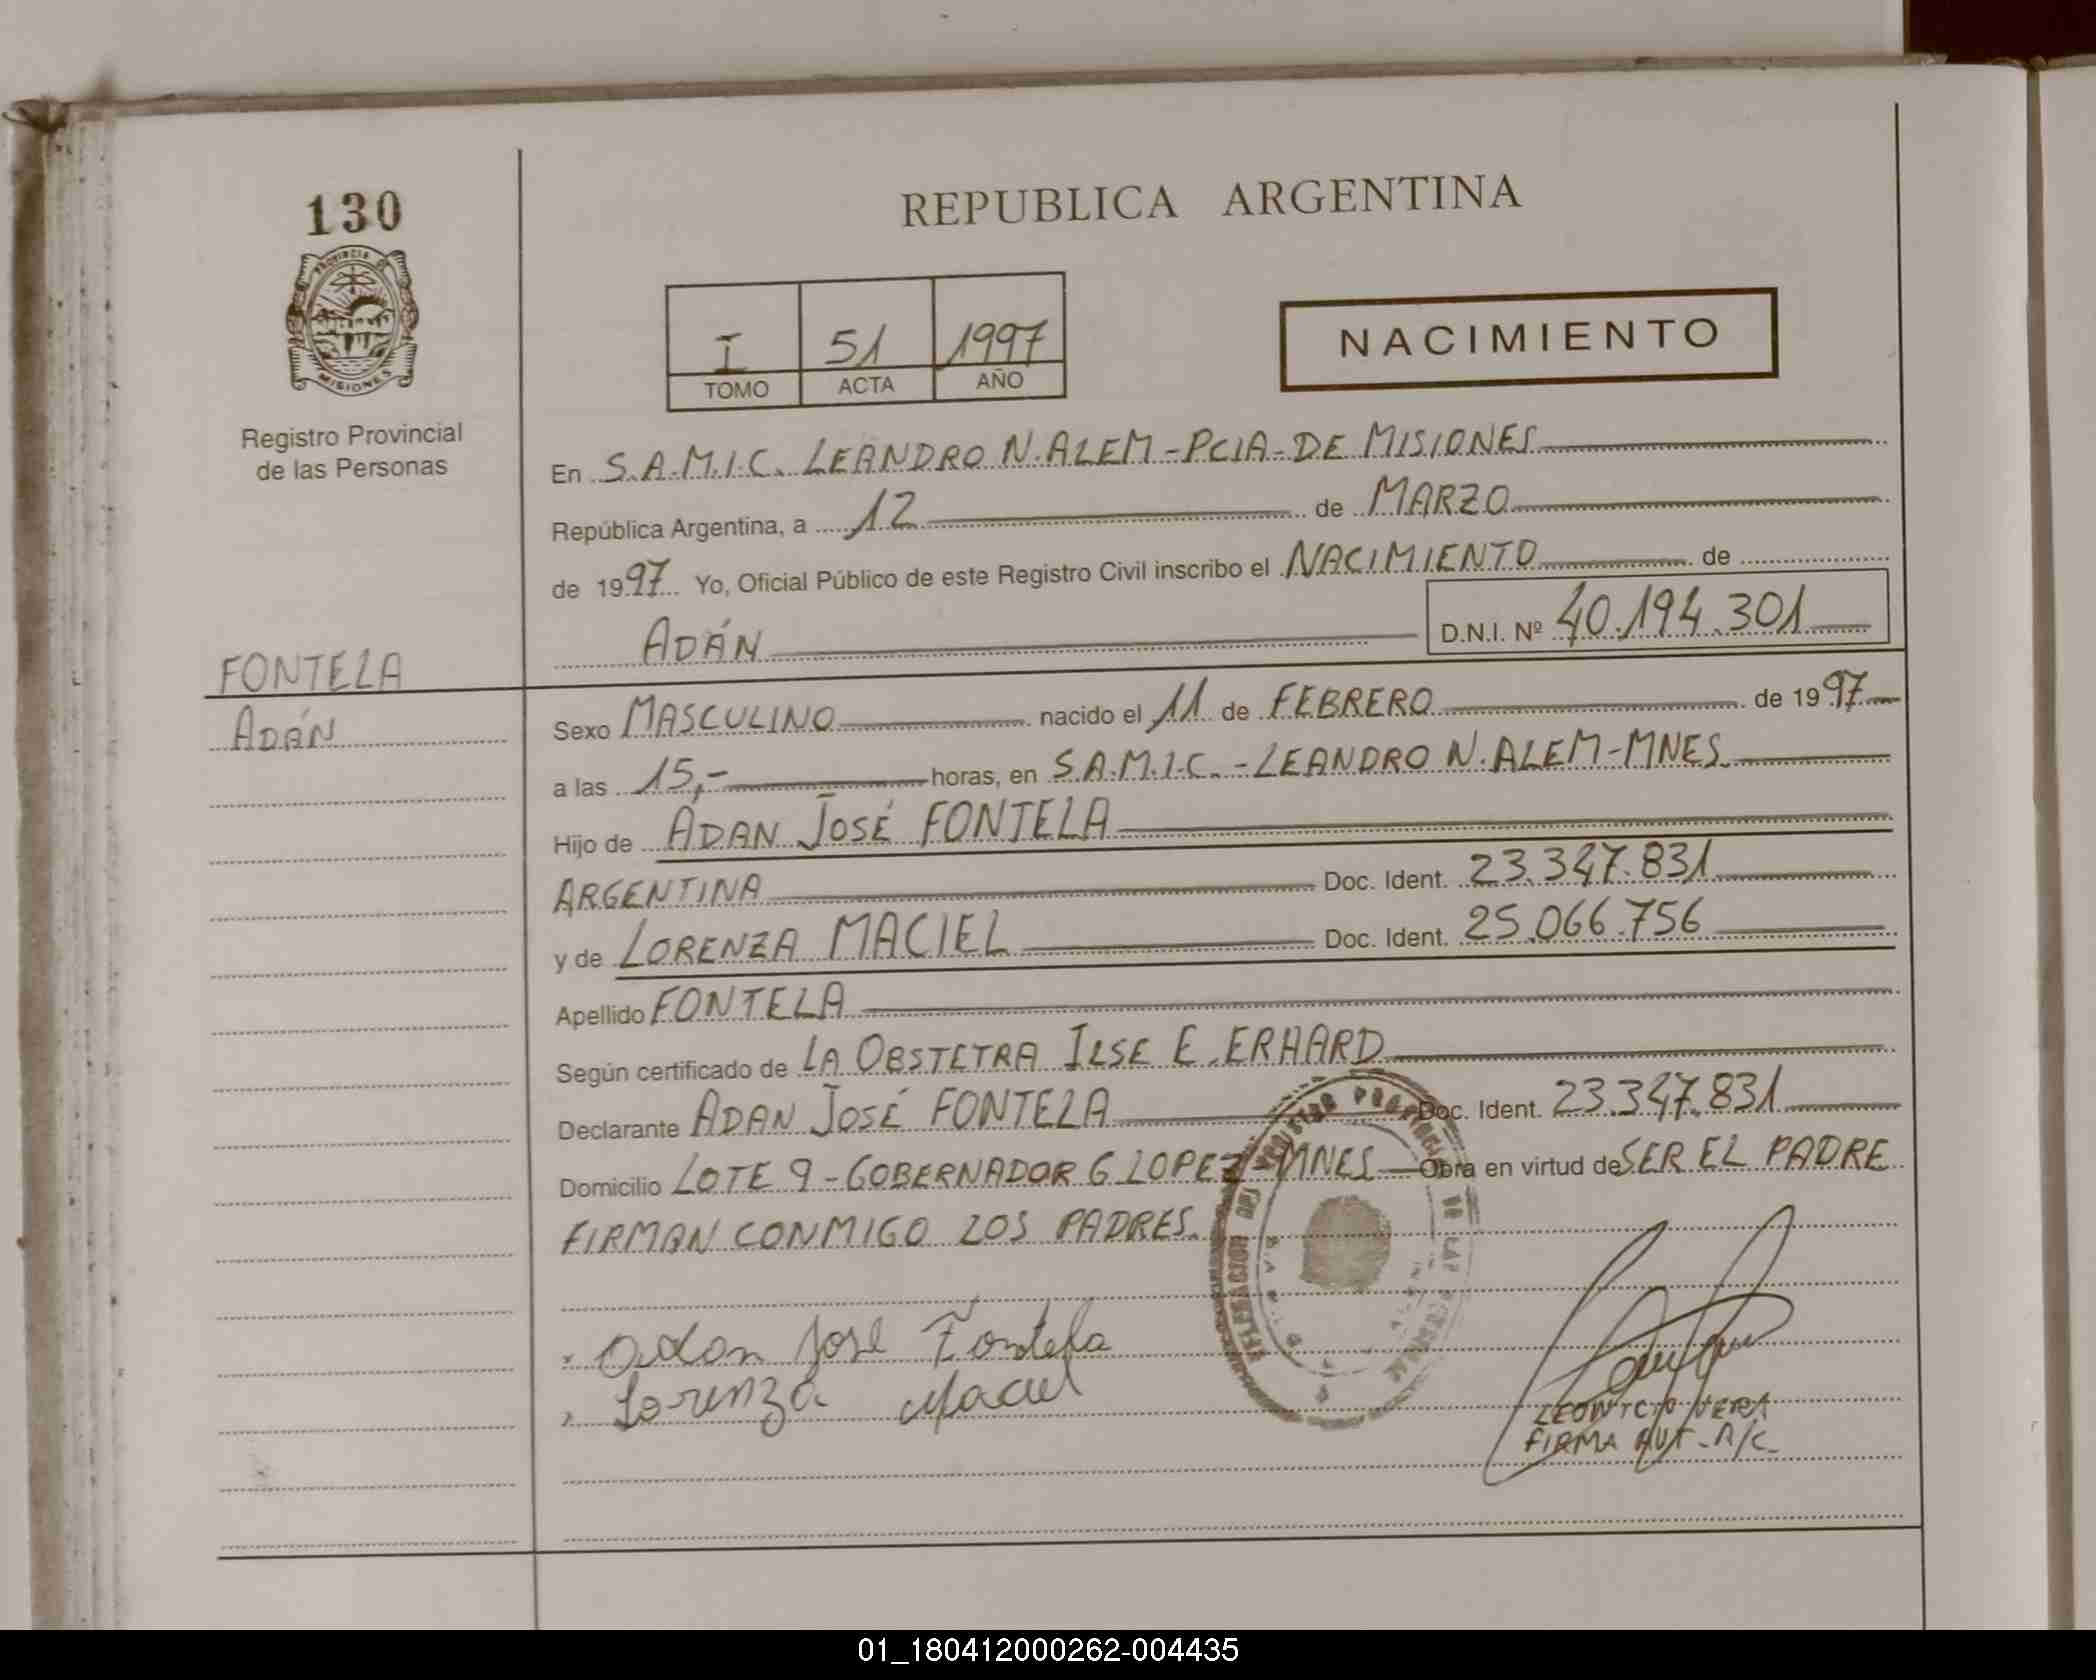 130
PROVINCIA DE
MISIONES
Registro Provincial
de las Personas
FONTELA
ADÁN
REPUBLICA ARGENTINA
I 51 1997
TOMO ACTA AÑO
NACIMIENTO
En S.A.M.I.C. LEANDRO N. ALEM-PCIA-DE MISIONES
República Argentina, a 12 de MARZO
de 1997 Yo, Oficial Público de este Registro Civil inscribo el NACIMIENTO de
ADÁN D.N.I. Nº 40.194.301
Sexo MASCULINO nacido el 11 de FEBRERO de 1997
a las 15,- horas, en S.A.M.I.C.-LEANDRO N. ALEM-MNES.
Hijo de ADAN JOSÉ FONTELA
ARGENTINA Doc. Ident. 23.347.831
y de LORENZA MACIEL Doc. Ident. 25.066.756
Apellido FONTELA
Según certificado de LA OBSTETRA ILSE E. ERHARD
Declarante ADAN JOSÉ FONTELA Doc. Ident. 23.347.831
Domicilio LOTE 9-GOBERNADOR G. LOPEZ-MNES Obra en virtud de SER EL PADRE
FIRMAN CONMIGO LOS PADRES.
Adan José Fontela
Lorenza Maciel
LEONICIO VERA
FIRMA AUT. A/C.
01_180412000262-004435